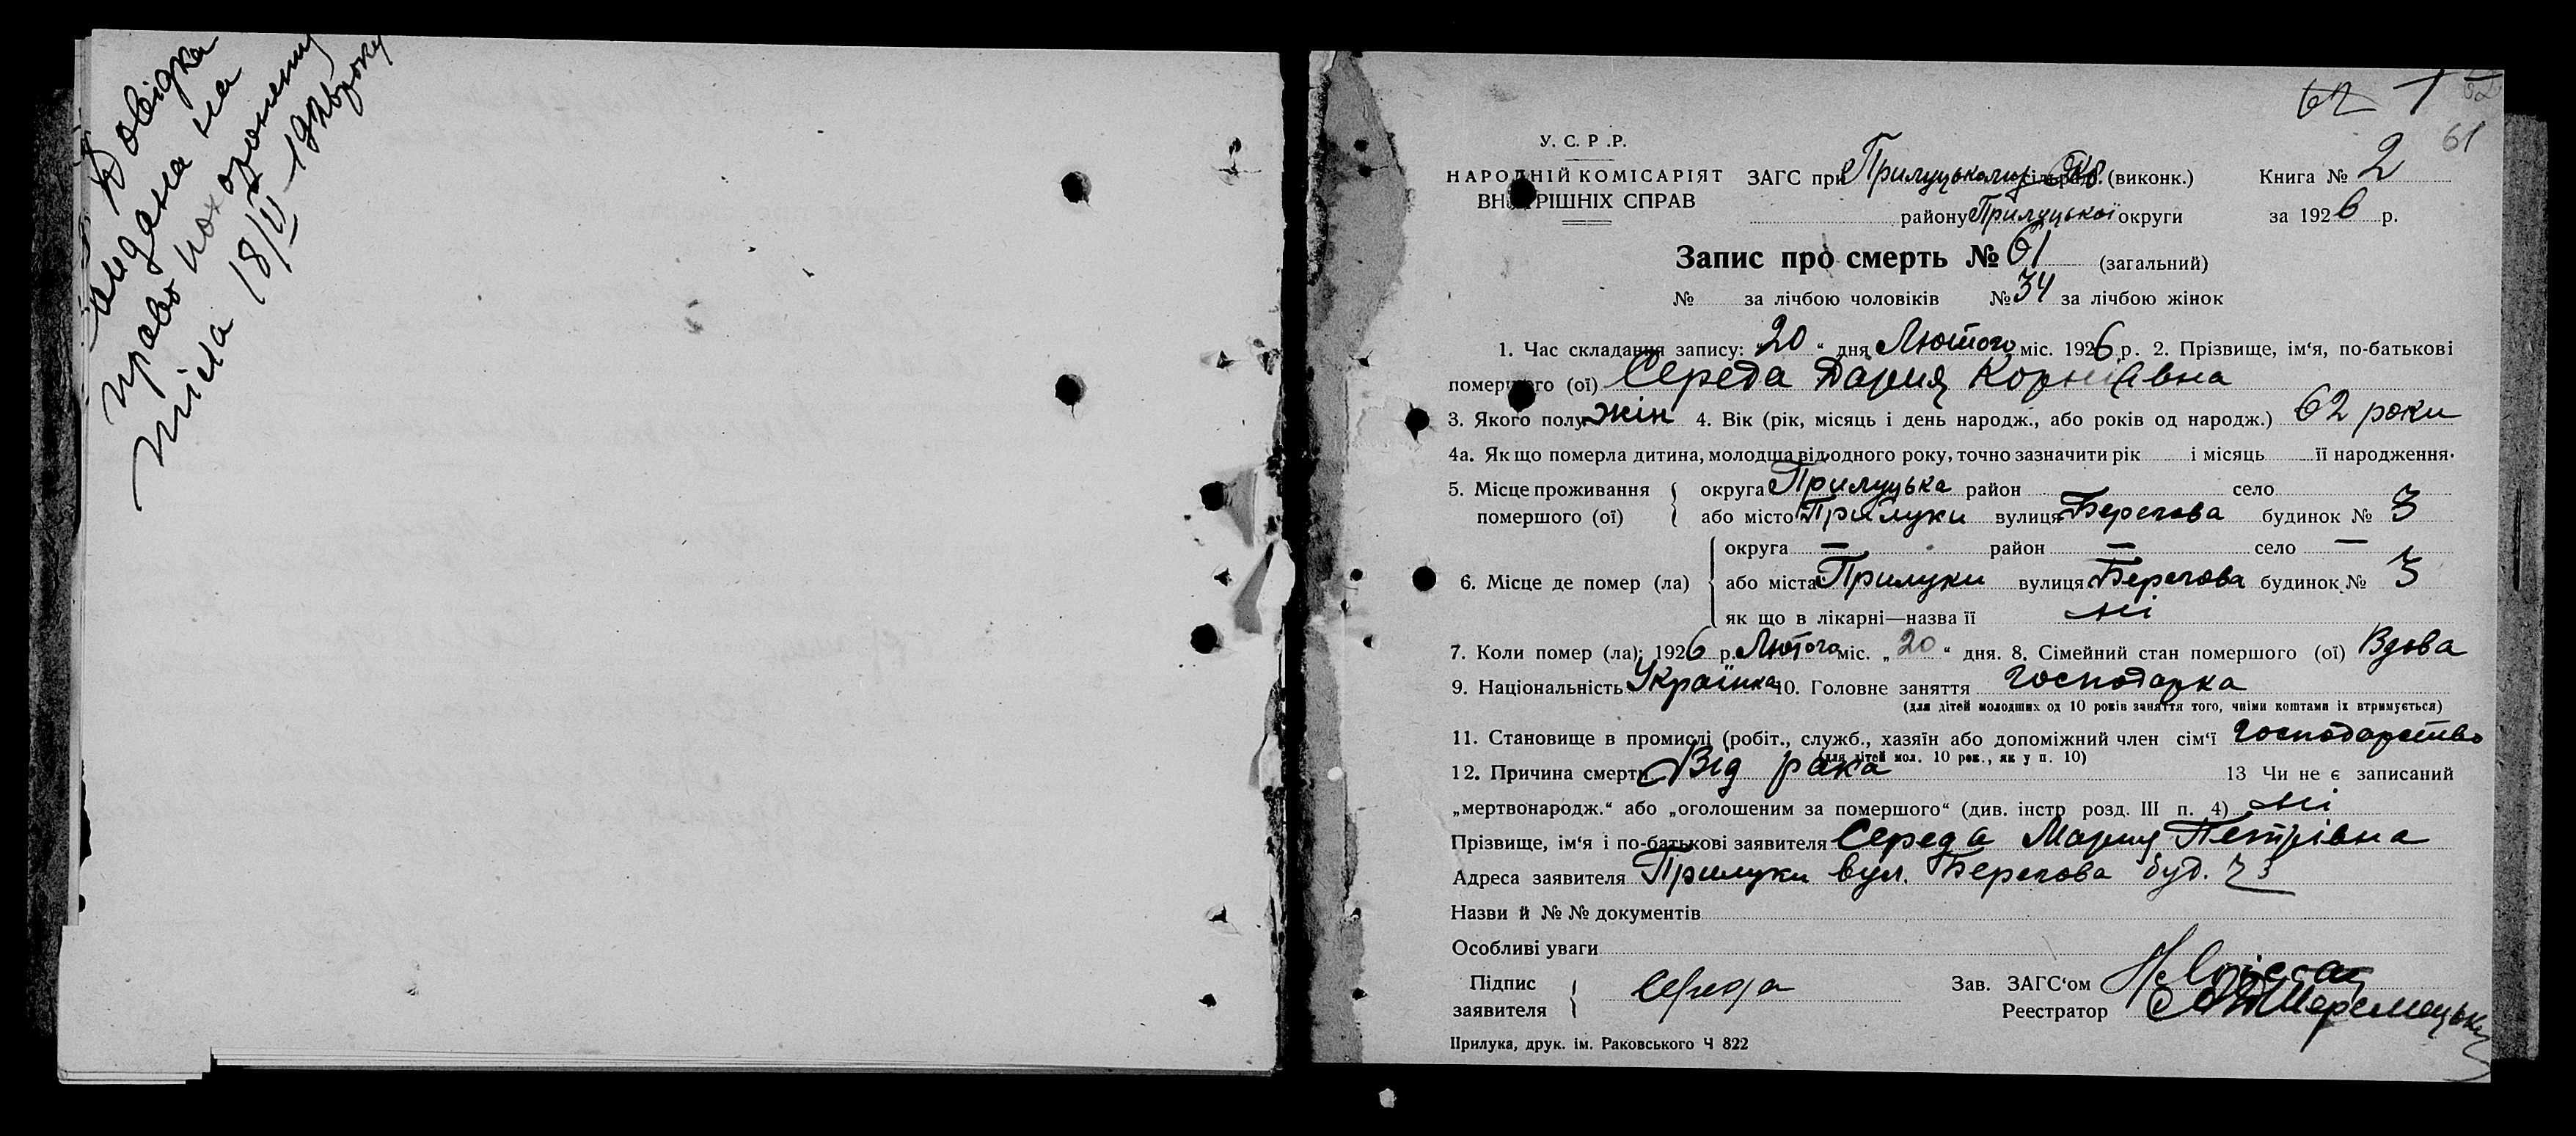 Довідка
видана на
право похоронення
тіла 18/II 1926 року
62 1
61
У. С. Р. Р.
НАРОДНІЙ КОМІСАРІЯТ
ВНУТРІШНІХ СПРАВ
ЗАГС при Прилуцькому (виконк.)
району Прилуцької округи
Книга № 2
за 1926 р.
Запис про смерть № 61 (загальний)
№ за лічбою чоловіків № 34 за лічбою жінок
1. Час складання запису: „20“ дня Лютого міс. 1926 р. 2. Прізвище, ім‘я, по-батькові
помершого (ої) Середа Дария Корніївна
3. Якого полу жін 4. Вік (рік, місяць і день народж., або років од народж.) 62 роки
4а. Як що померла дитина, молодша від одного року, точно зазначити рік і місяць її народження.
5. Місце проживання помершого (ої) { округа Прилуцька район село
або місто Прилуки вулиця Берегова будинок № 3
6. Місце де помер (ла) { округа — район — село —
або міста Прилуки вулиця Берегова будинок № 3
як що в лікарні—назва її ні
7. Коли помер (ла): 1926 р. Лютого міс. „20“ дня. 8. Сімейний стан помершого (ої) Вдова
9. Національність Українка 10. Головне заняття Господарка
(для дітей молодших од 10 років заняття того, чиїми коштами їх втримується)
11. Становище в промислі (робіт., служб., хазяїн або допоміжний член сім‘ї Господарство
(для дітей мол. 10 рок., як у п. 10)
12. Причина смерти Від рака 13 Чи не є записаний
„мертвонародж.“ або „оголошеним за помершого“ (див. інстр розд. III п. 4) ні
Прізвище, ім‘я і по-батькові заявителя Середа Мария Петрівна
Адреса заявителя Прилуки вул. Берегова буд. 3
Назви й № № документів
Особливі уваги
Підпис заявителя } Середа
Зав. ЗАГС‘ом
Реестратор
Прилука, друк. ім. Раковського Ч 822